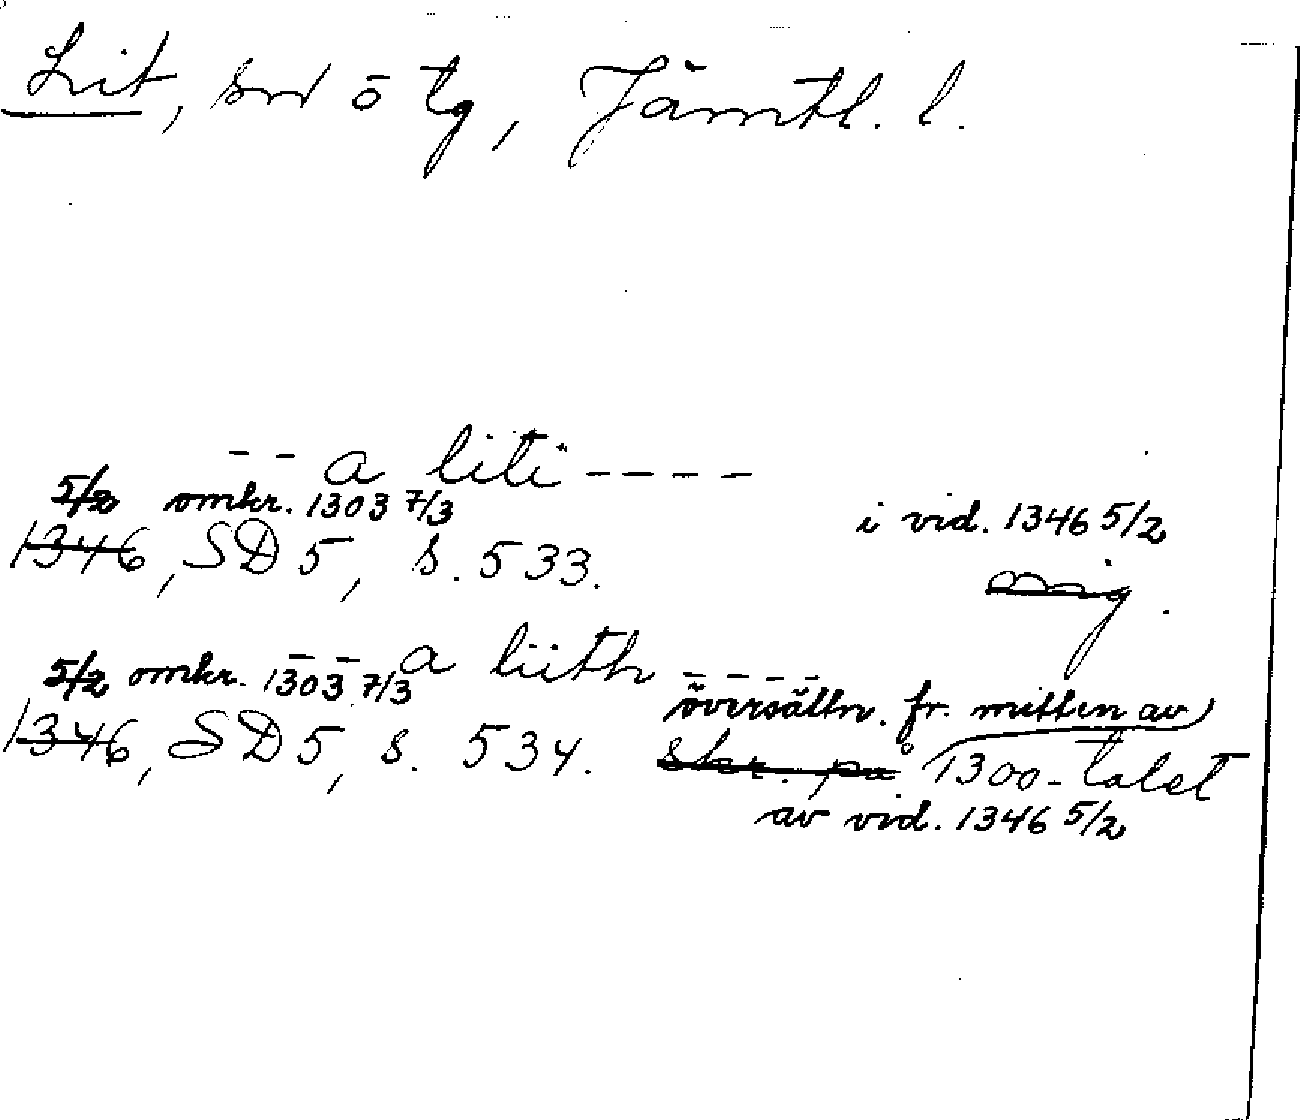 Lit, sn ō tg, Jämtl. l.
– – a liti – – – –
5/2 omkr. 1303 7/3 i vid. 1346 5/2
1346, SD 5, s. 533. orig.
– – a liith – – – –
5/2 omkr. 1303 7/3 översättn. fr. mitten av
1346, SD 5, s. 534. skr. på 1300-talet
av vid. 1346 5/2